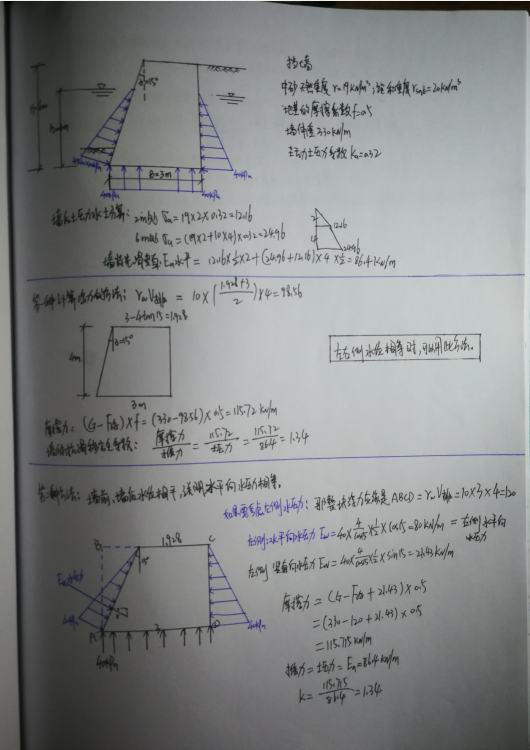 挡墙
中砂天然重度 γ=19kN/m³，饱和重度 γsat=20kN/m³
地基的摩擦系数 f=0.5
墙体重 330kN/m
主动土压力系数 Ka=0.32
θ=15°
B=3m
墙后土压力水土分算：2m处 σa=19×2×0.32=12.16
6m处 σa=(19×2+10×4)×0.32=24.96
2
12.16
4
24.96
Ea水平 = 12.16×½×2+(24.96+12.16)×4×½=86.4kN/m
第一种计算浮力的方法：γwV = 10×(1.928+3/2)×4=
3-4tan15=1.928
4m
θ=15°
3m
左右侧水位相等时，可以用此方法。
摩擦力=(G-F浮)×f=(330-98.56)×0.5=115.72kN/m
摩擦力/推力=115.72/土压力=115.72/86.4=1.34
第二种方法：墙前、墙后水位相平，说明水平向水压力相等。
ABCD=γwV=10×3×4=120
左侧水平向水压力 Ew=40×4/cos15×½×cos15=80kN/m
左侧竖直向水压力 Ew=40×4/cos15×½×sin15=21.43kN/m
B
1.928
C
15°
摩擦力=(G-F浮+21.43)×0.5
=(330-120+21.43)×0.5
=115.715kN/m
推力=土压力=Ea=86.4kN/m
K=115.715/86.4=1.34